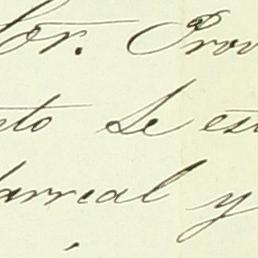 Sor. Prov
nto se est
larreal y